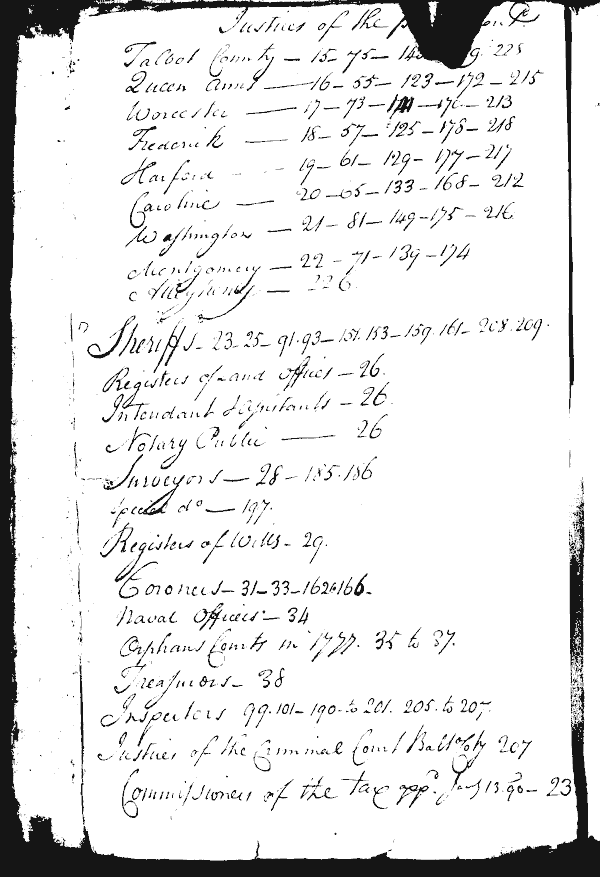 Justices of the
Talbot County — 15 — 75 — 225
Queen Anns — 16 — 55 — 123 — 172 — 215
Worcester — 17 — 73 — 213
Frederick — 18 — 57 — 125 — 178 — 218
Harford — 19 — 61 — 129 — 177 — 217
Caroline — 20 — 65 — 133 — 168 — 212
Washington — 21 — 81 — 149 — 175 — 216
Montgomery — 22 — 71 — 139 — 174
Alleghany — 226
Sheriff's — 23. 25 — 91. 93 — 151. 153 — 159. 161 — 208. 209.
Registers of Land offices — 26.
Intendant & Assistants — 26.
Notary Public — 26
Surveyors — 28 — 185. 186
special do — 197.
Registers of Wills — 29.
Coroners — 31 — 33 — 162 166 —
Naval Officers — 34
Orphans Courts in 1777. 35 to 37.
Treasurors — 38
Inspectors 99. 101 — 190. to 201. 205. to 207.
Justices of the Criminal Court Balto Cty 207
Commissioners of the Tax appd. Jany 13. 90 — 23